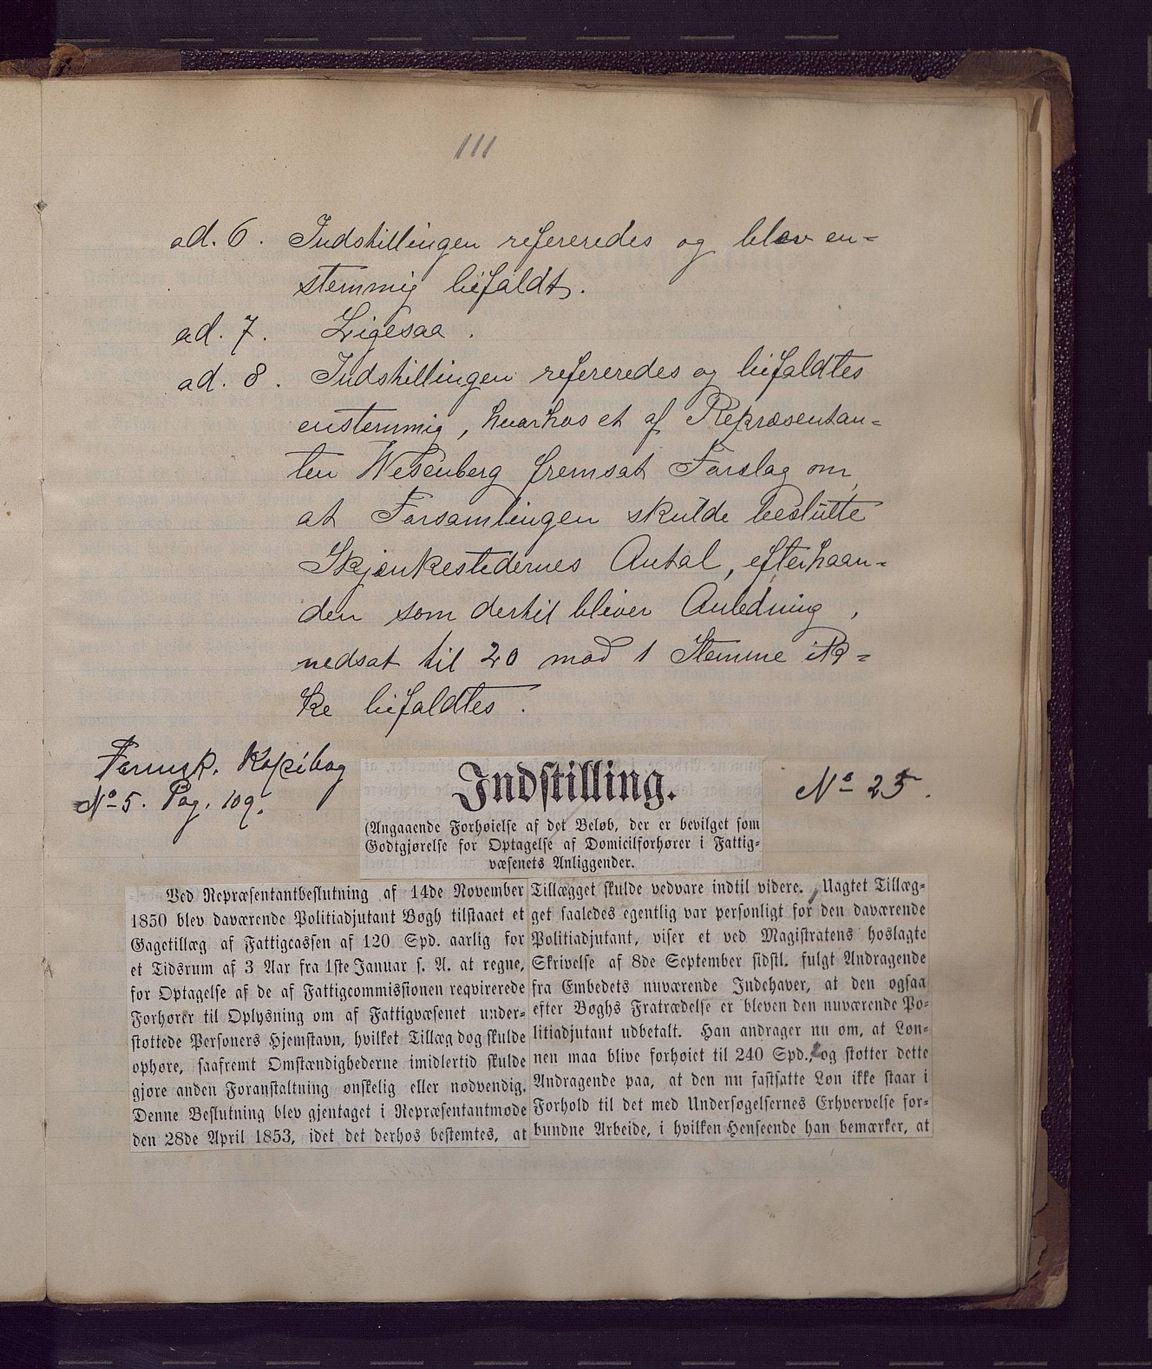 111
ad. 6. Indstillingen refereredes og blev en-
stemmig bifaldt.
ad. 7. Ligesaa.
ad. 8. Indstillingen refereredes og bifaldtes
enstemmig, hvorhos et af Repræsentan-
ten Wesenberg fremsat Forslag om,
at Forsamlingen skulde beslutte
Skjænkestedernes Antal, efterhaan-
den som dertil bliver Anledning,
nedsat til 20 mod 1 Stemme ik-
ke bifaldtes.
Formsk. Kopibog
No 5. Pag. 109.
Indstilling.
No 25.
(Angaaende Forhøielse af det Beløb, der er bevilget som
Godtgjørelse for Optagelse af Domicilforhører i Fattig-
væsenets Anliggender.
Ved Repræsentantbeslutning af 14de November
1850 blev daværende Politiadjutant Bøgh tilstaaet et
Gagetillæg af Fattigcassen af 120 Spd. aarlig for
et Tidsrum af 3 Aar fra 1ste Januar f. A. at regne,
for Optagelse af de af Fattigcommissionen reqvirerede
Forhører til Oplysning om af Fattigvæsenet under-
støttede Personers Hjemstavn, hvilket Tillæg dog skulde
ophøre, saafremt Omstændighederne imidlertid skulde
gjøre anden Foranstaltning ønskelig eller nødvendig.
Denne Beslutning blev gjentaget i Repræsentantmøde
den 28de April 1853, idet det derhos bestemtes, at
Tillægget skulde vedvare indtil videre. Uagtet Tillæg-
get saaledes egentlig var personligt for den daværende
Politiadjutant, viser et ved Magistratens hoslagte
Skrivelse af 8de September sidstl. fulgt Andragende
fra Embedets nuværende Indehaver, at den ogsaa
efter Bøghs Fratrædelse er bleven den nuværende Po-
litiadjutant udbetalt. Han andrager nu om, at Løn-
nen maa blive forhøiet til 240 Spd., og støtter dette
Andragende paa, at den nu fastsatte Løn ikke staar i
Forhold til det med Undersøgelsernes Erhvervelse for-
bundne Arbeide, i hvilken Henseende han bemærker, at